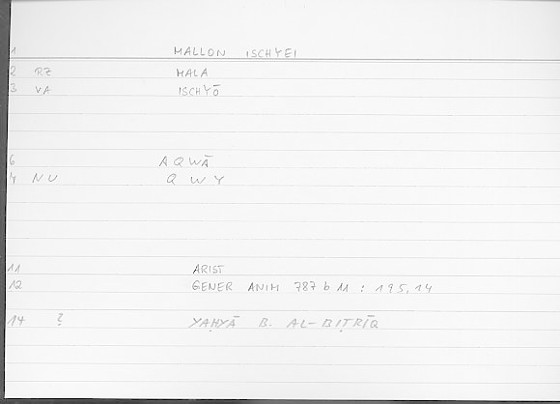 1 MALLON ISCHYEI
2 RZ MALA
3 VA ISCHYŌ
6 AQWĀ
4 NU QWY
11 ARIST
12 GENER ANIM 787 b 11 : 195,14
14 ? YAḤYĀ B. AL-BIṬRĪQ